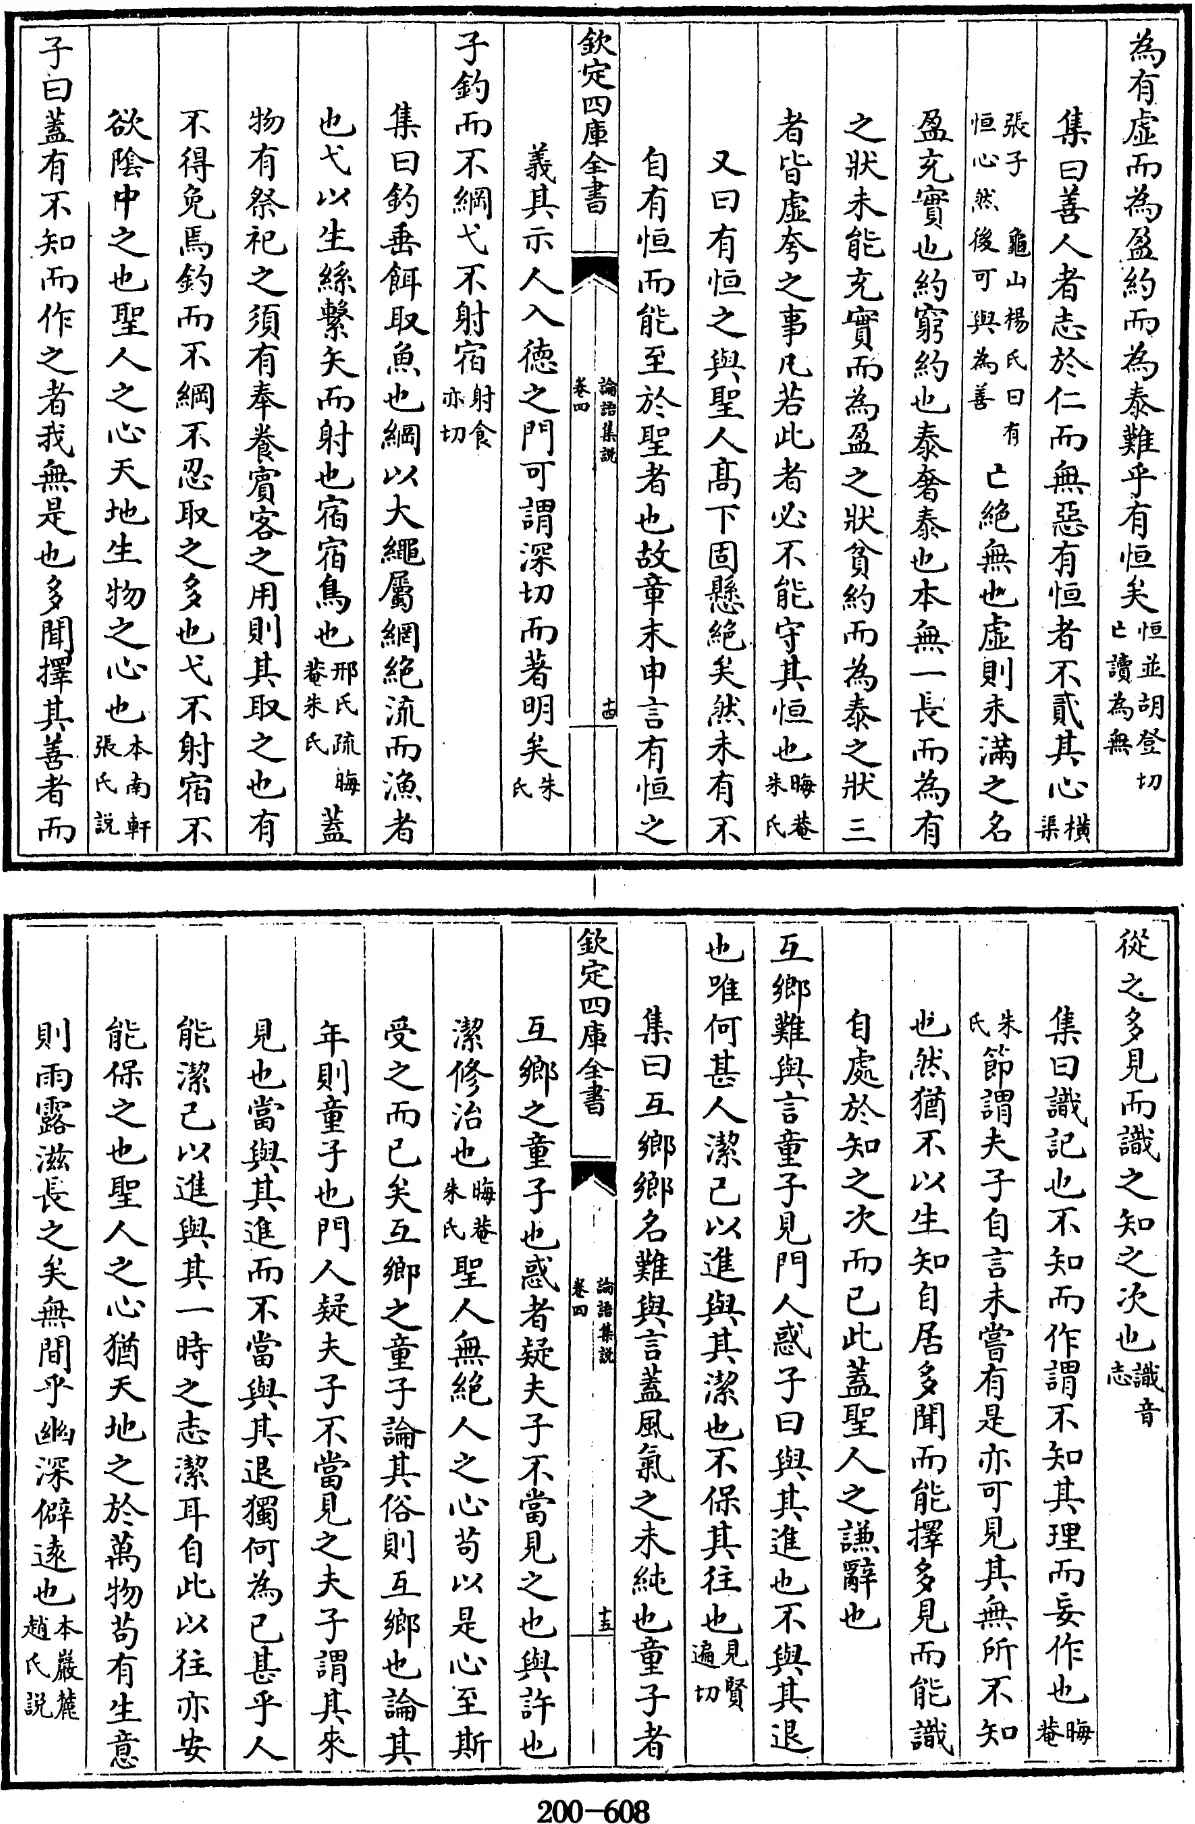 為有虛而為盈約而為泰難乎有恒矣恒並胡登切亡讀為無
集曰善人者志於仁而無惡有恒者不貳其心橫渠
張子龜山楊氏曰有恒心然後可與為善亡絕無也虛則未滿之名
盈充實也約窮約也泰奢泰也本無一長而為有
之狀未能充實而為盈之狀貧約而為泰之狀三
者皆虛夸之事凡若此者必不能守其恒也晦菴朱氏
又曰有恒之與聖人高下固懸絕矣然未有不
自有恒而能至於聖者也故章末申言有恒之
欽定四庫全書
論語集說
卷四
十四
義其示人入德之門可謂深切而著明矣朱氏
子釣而不綱弋不射宿射食亦切
集曰釣垂餌取魚也綱以大繩屬網絕流而漁者
也弋以生絲繫矢而射也宿宿鳥也邢氏疏晦菴朱氏蓋
物有祭祀之須有奉養賓客之用則其取之也有
不得免焉釣而不綱不忍取之多也弋不射宿不
欲陰中之也聖人之心天地生物之心也本南軒張氏說
子曰蓋有不知而作之者我無是也多聞擇其善者而
從之多見而識之知之次也識音志
集曰識記也不知而作謂不知其理而妄作也晦菴
朱氏節謂夫子自言未嘗有是亦可見其無所不知
也然猶不以生知自居多聞而能擇多見而能識
自處於知之次而已此蓋聖人之謙辭也
互鄉難與言童子見門人惑子曰與其進也不與其退
也唯何甚人潔己以進與其潔也不保其往也見賢遍切
集曰互鄉鄉名難與言蓋風氣之未純也童子者
欽定四庫全書
論語集說
卷四
十五
互鄉之童子也惑者疑夫子不當見之也與許也
潔修治也晦菴朱氏聖人無絕人之心苟以是心至斯
受之而已矣互鄉之童子論其俗則互鄉也論其
年則童子也門人疑夫子不當見之夫子謂其來
見也當與其進而不當與其退獨何為已甚乎人
能潔己以進與其一時之志潔耳自此以往亦安
能保之也聖人之心猶天地之於萬物苟有生意
則雨露滋長之矣無間乎幽深僻遠也本巖麓趙氏說
200-608